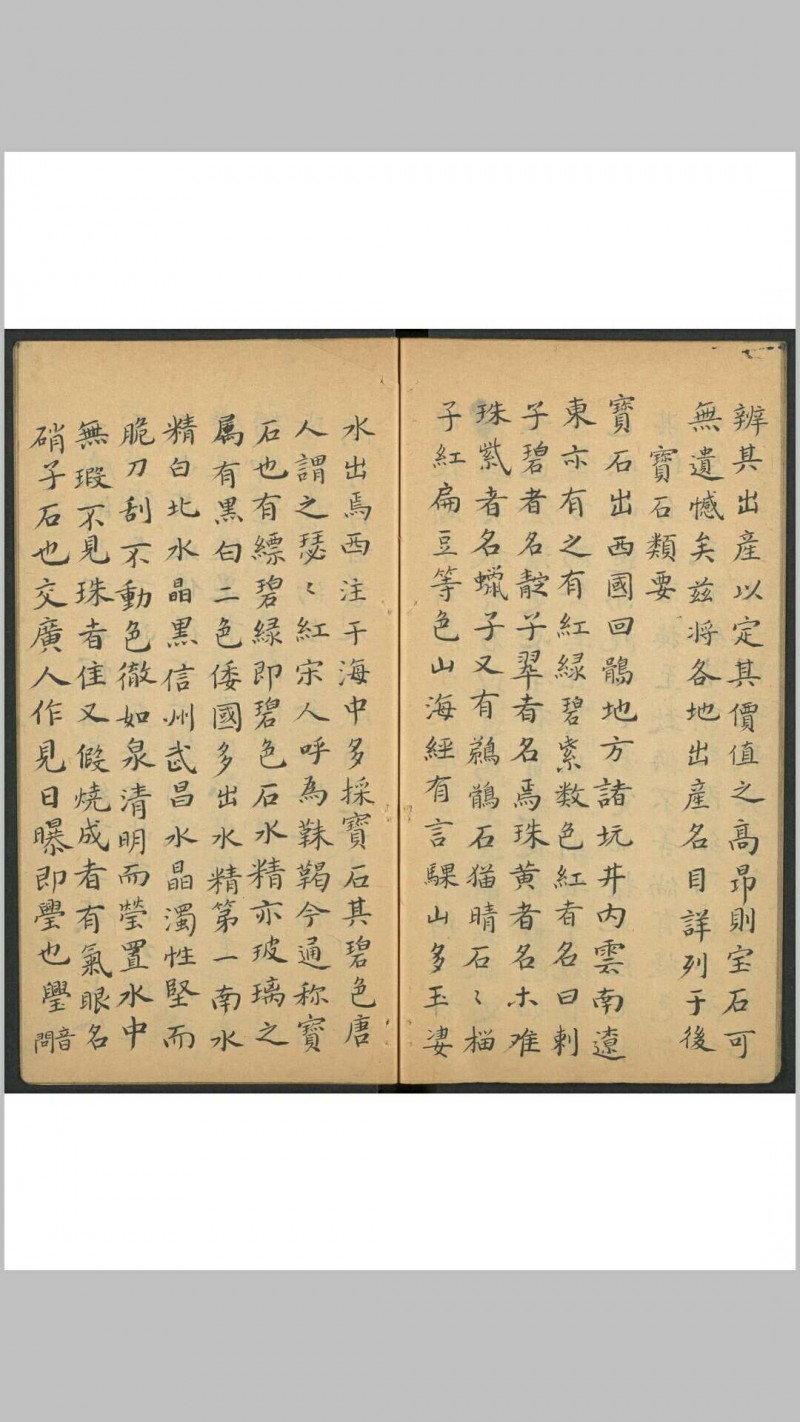 辨其出產以定其價值之高昻則宝石可
無遺憾矣兹將各地出產名目詳列于後
寶石類要
寶石出西國回鶻地方諸坑井内雲南遼
東亦有之有紅緑碧紫数色紅者名曰刺
子碧者名靛子翠者名馬珠黄者名木难
珠紫者名蠟子又有鵜鶻石猫晴石〻榴
子紅扁豆等色山海經有言騍山多玉淒
水出焉西注于海中多採寳石其碧色唐
人謂之瑟〻紅宋人呼為靺鞨今通称寳
石也有縹碧緑即碧色石水精亦玻璃之
属有黑白二色倭國多出水精第一南水
精白北水晶黑信州武昌水晶濁性堅而
脆刀刮不動色徹如泉清明而瑩置水中
無瑕不見珠者佳又假燒成者有氣眼名
硝子石也交廣人作見日曝即璺也璺音問